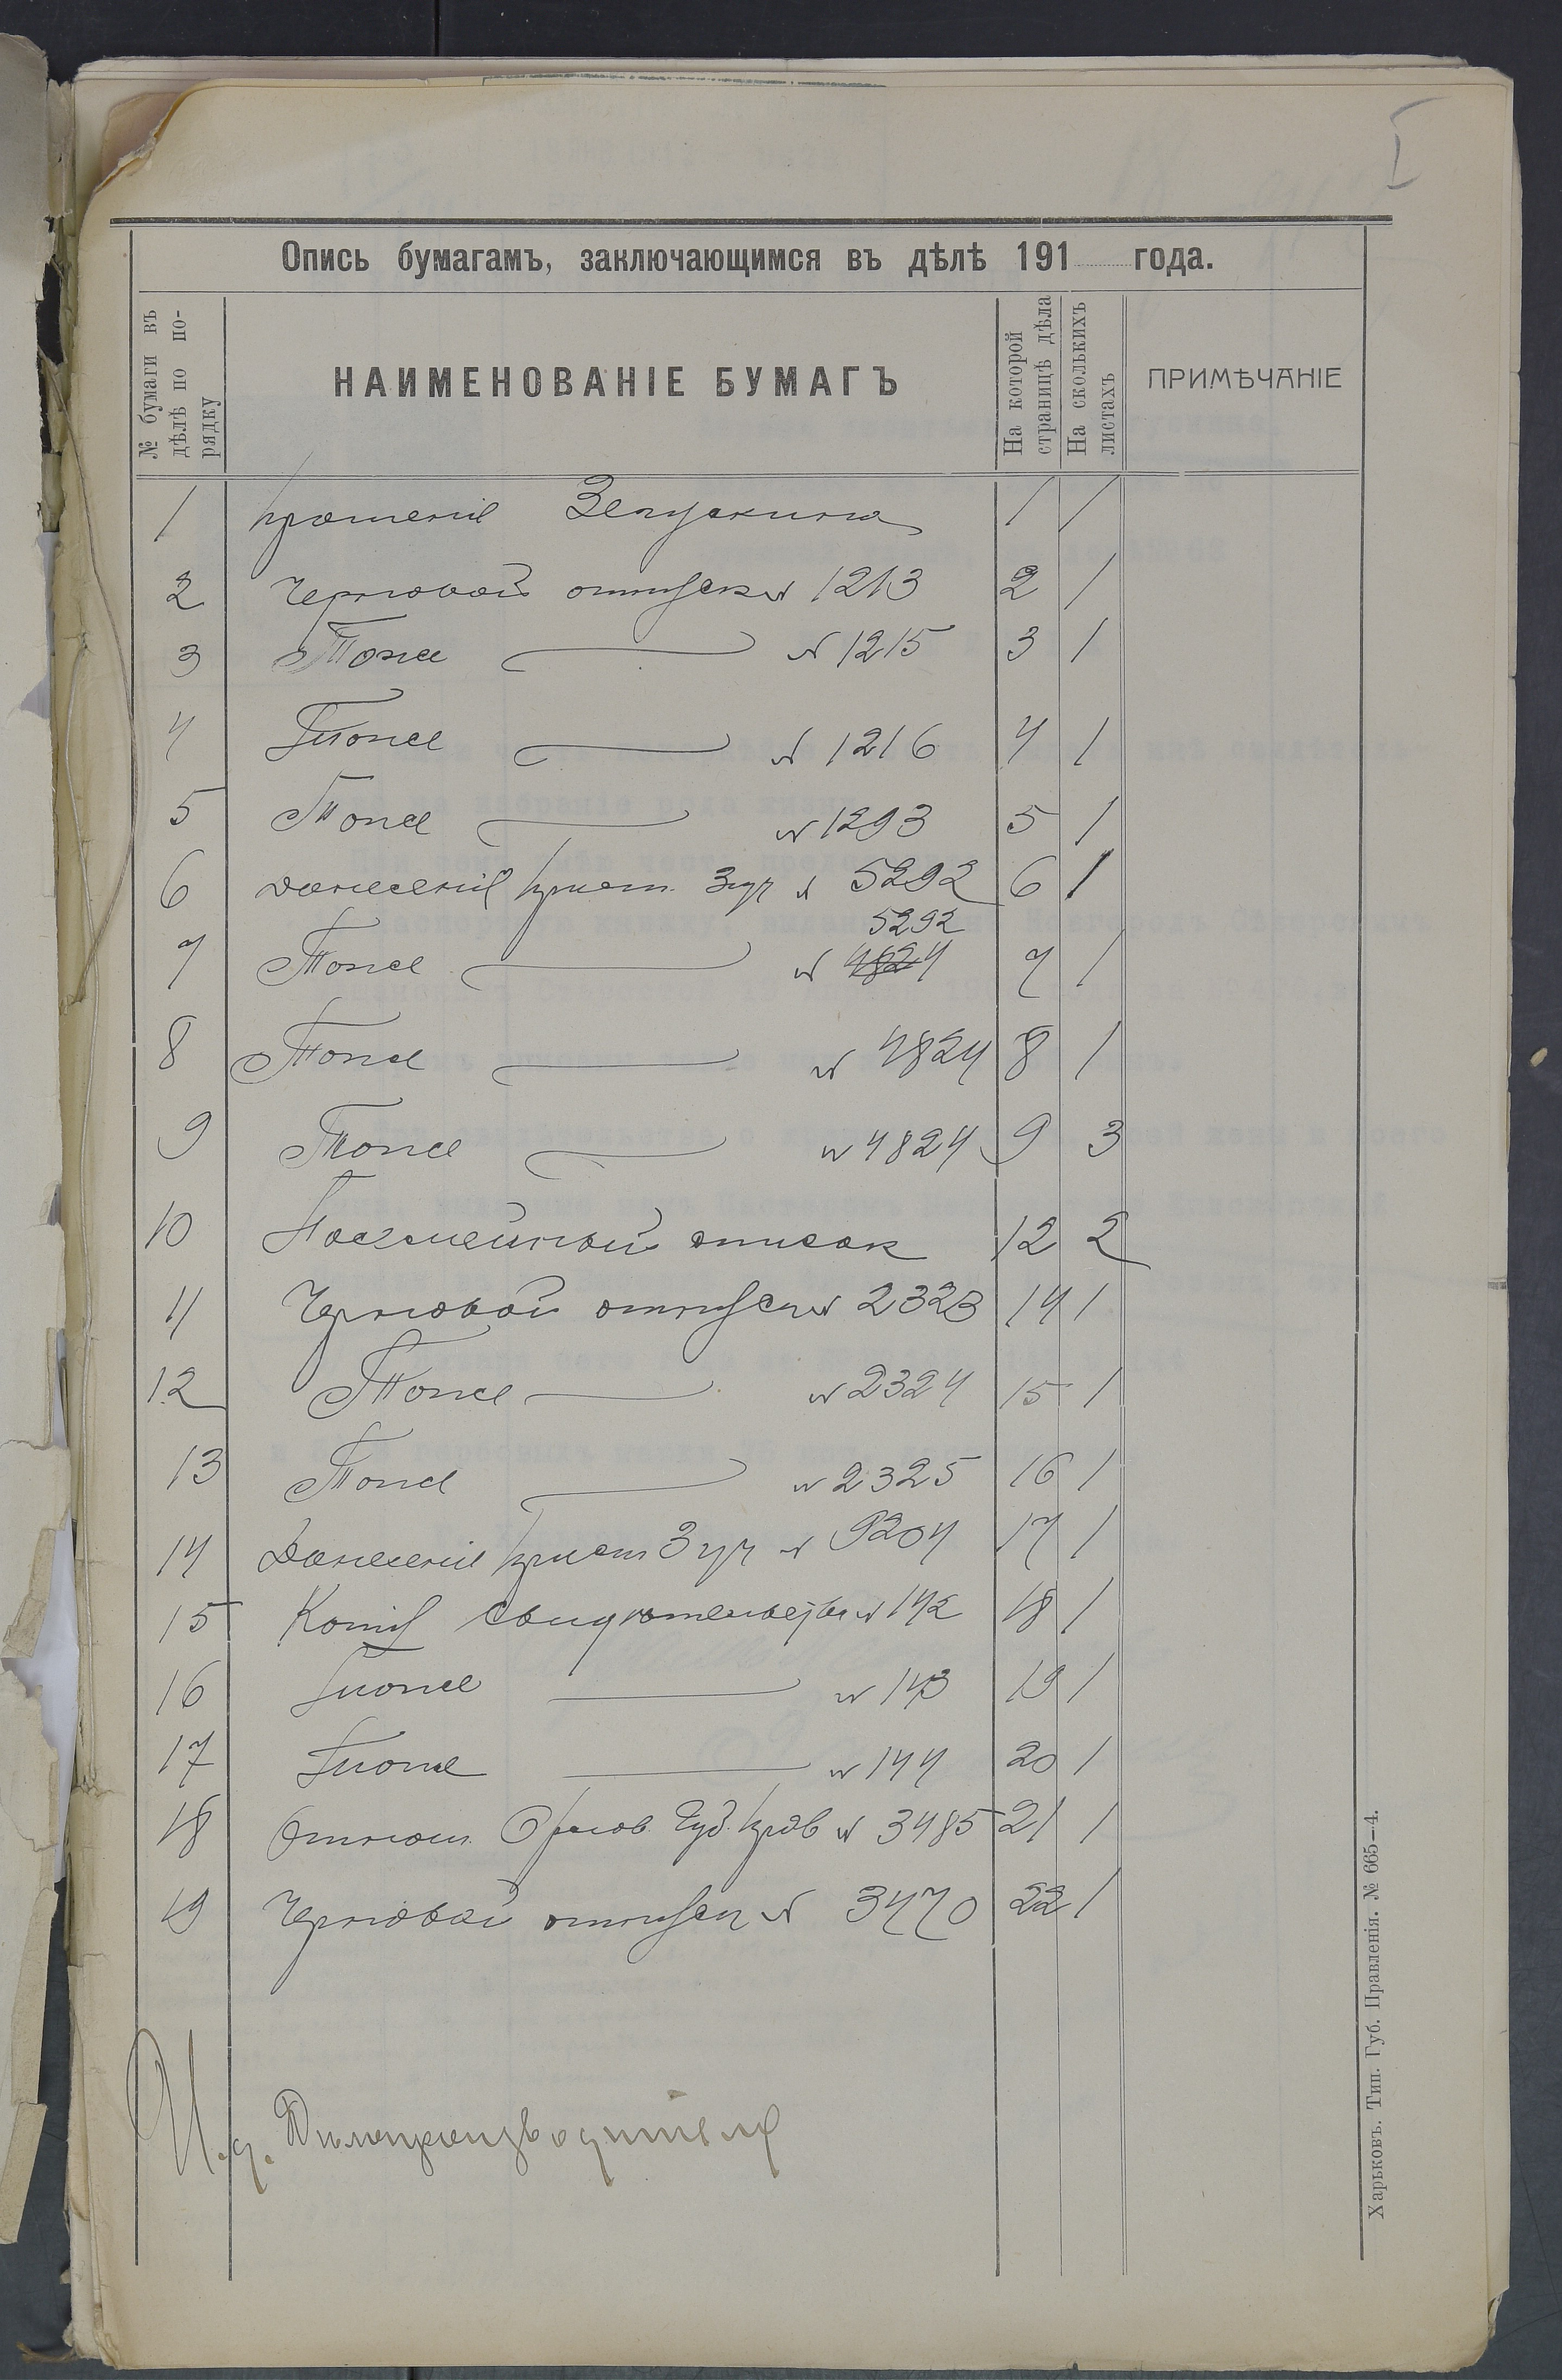 I
Опись бумагамъ, заключающимся въ дѣлѣ 191 года.
№ бумаги въ дѣлѣ по порядку
НАИМЕНОВАНІЕ БУМАГЪ
На которой страницѣ дѣла
На сколькихъ листахъ
ПРИМѢЧАНІЕ
1 прошеніе 1 1
2 Черновой отпуск № 1213 2 1
3 Тоже № 1215 3 1
4 Тоже № 1216 4 1
5 Тоже № 1293 5 1
6 донесеніе прист. 3 уч № 5292 6 1
5292
7 Тоже № 4824 7 1
8 Тоже № 4824 8 1
9 Тоже № 4824 9 3
10 Посемейный список 12 2
11 Черновой отпуск № 2323 14 1
12 Тоже № 2324 15 1
13 Тоже № 2325 16 1
14 Донесеніе прист 3 уч № 9204 17 1
15 Копія свидетельства № 142 18 1
16 Тоже № 143 19 1
17 Тоже № 144 20 1
18 Отнош. Орлов. Губ. Прав № 3485 21 1
19 Черновой отпуск № 3470 22 1
И. д. Делопроизводителя
Харьковъ. Тип. Губ. Правленія. № 665—4.